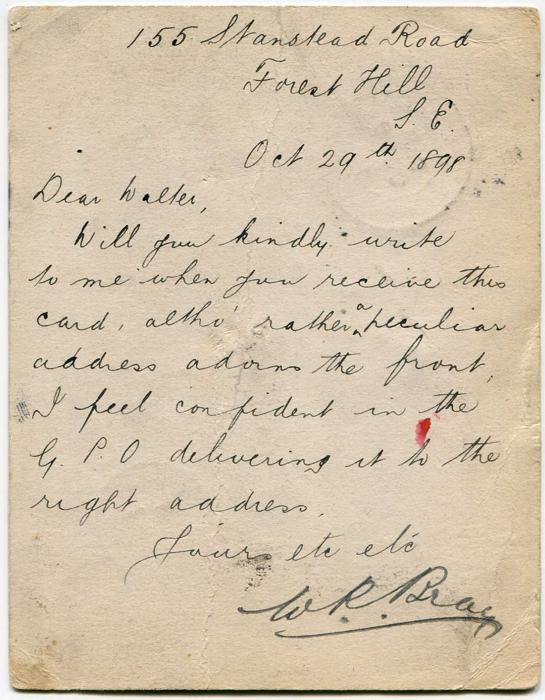 155 Stanstead Road
Forest Hill
S. E.
Oct 29th 1898
Dear Walter,
Will you kindly write
to me when you receive this
card, altho' rather a peculiar
address adorns the front,
I feel confident in the
G. P. O delivering it to the
right address.
Yours etc etc
W. R. Bray